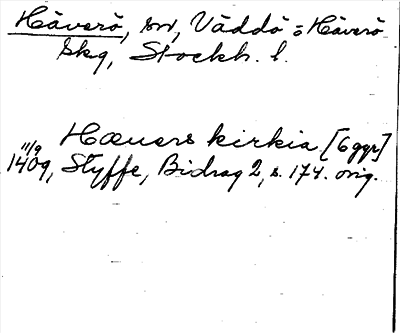 Häverö, sn, Väddö o Häverö
skg, Stockh. l.
Hæuers kirkia [6 ggr]
11/9
1409, Styffe, Bidrag 2, s. 174. orig.